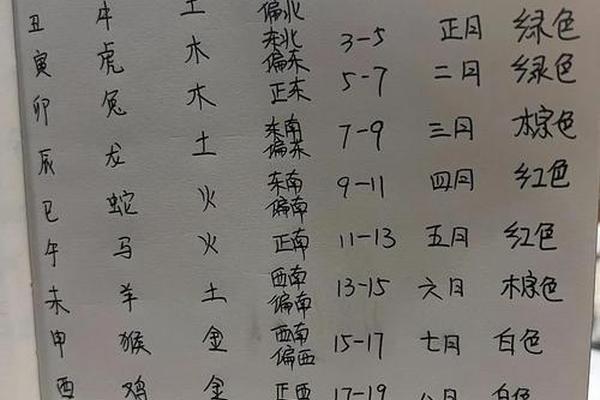 丑 牛 土 偏北
寅 虎 木 东北偏东 3-5 正月 绿色
卯 兔 木 正东 5-7 二月 绿色
辰 龙 土 东南偏东 7-9 三月 棕色
巳 蛇 火 东南偏南 9-11 四月 红色
午 马 火 正南 11-13 五月 红色
未 羊 土 西南偏南 13-15 六月 棕色
申 猴 金 西南偏西 15-17 七月 白色
酉 鸡 金 正西 17-19 八月 白色